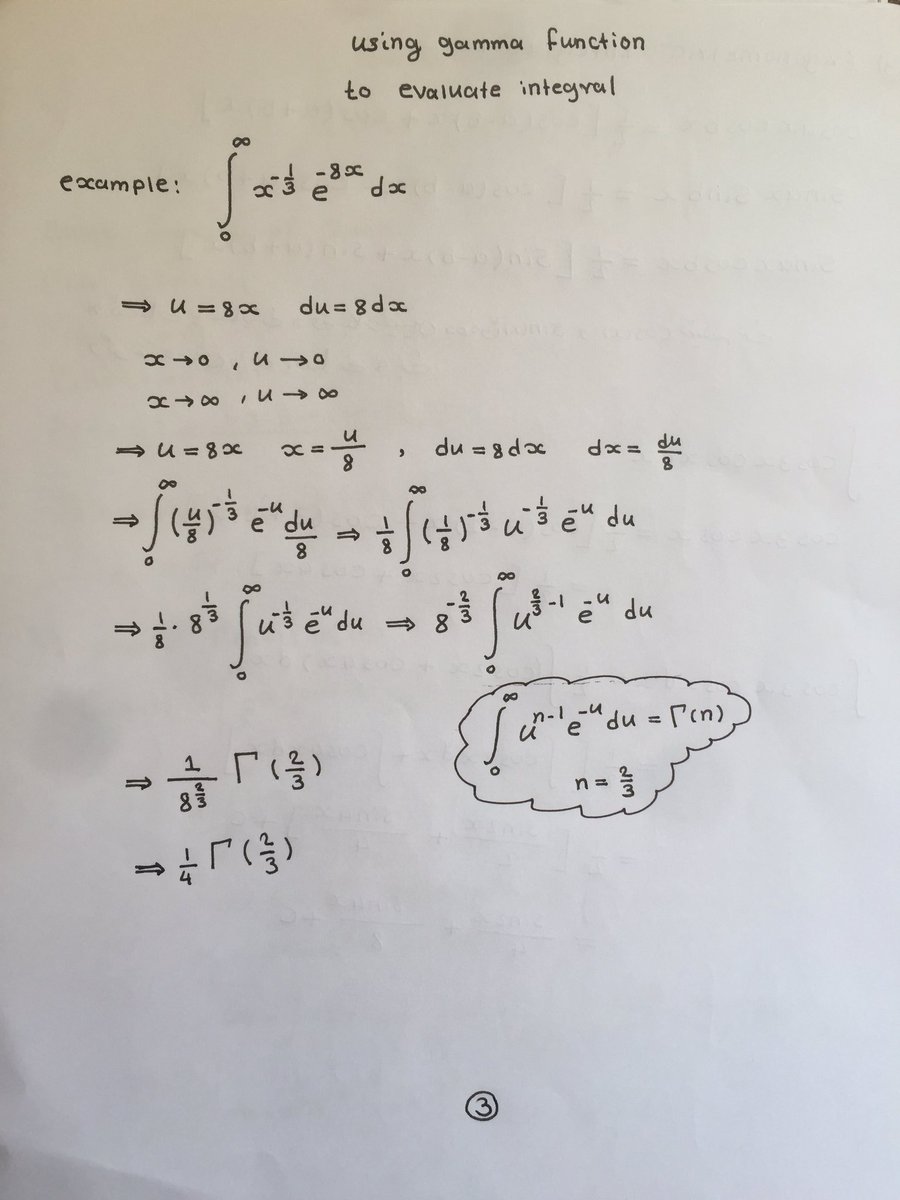 using gamma function
to evaluate integral
example: ∫₀^∞ x^(-1/3) e^(-8x) dx
⇒ u = 8x   du = 8dx
x → 0 , u → 0
x → ∞ , u → ∞
⇒ u = 8x   x = u/8 , du = 8dx   dx = du/8
⇒ ∫₀^∞ (u/8)^(-1/3) e^(-u) du/8 ⇒ 1/8 ∫₀^∞ (1/8)^(-1/3) u^(-1/3) e^(-u) du
⇒ 1/8 · 8^(1/3) ∫₀^∞ u^(-1/3) e^(-u) du ⇒ 8^(-2/3) ∫₀^∞ u^(2/3 -1) e^(-u) du
∫₀^∞ u^(n-1) e^(-u) du = Γ(n)
n = 2/3
⇒ 1/8^(2/3) Γ(2/3)
⇒ 1/4 Γ(2/3)
3